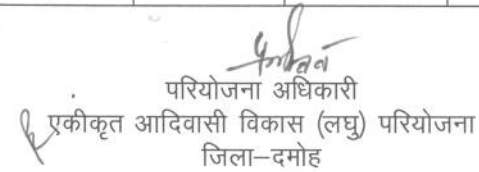 परियोजना अधिकारी
एकीकृत आदिवासी विकास (लघु) परियोजना
जिला–दमोह